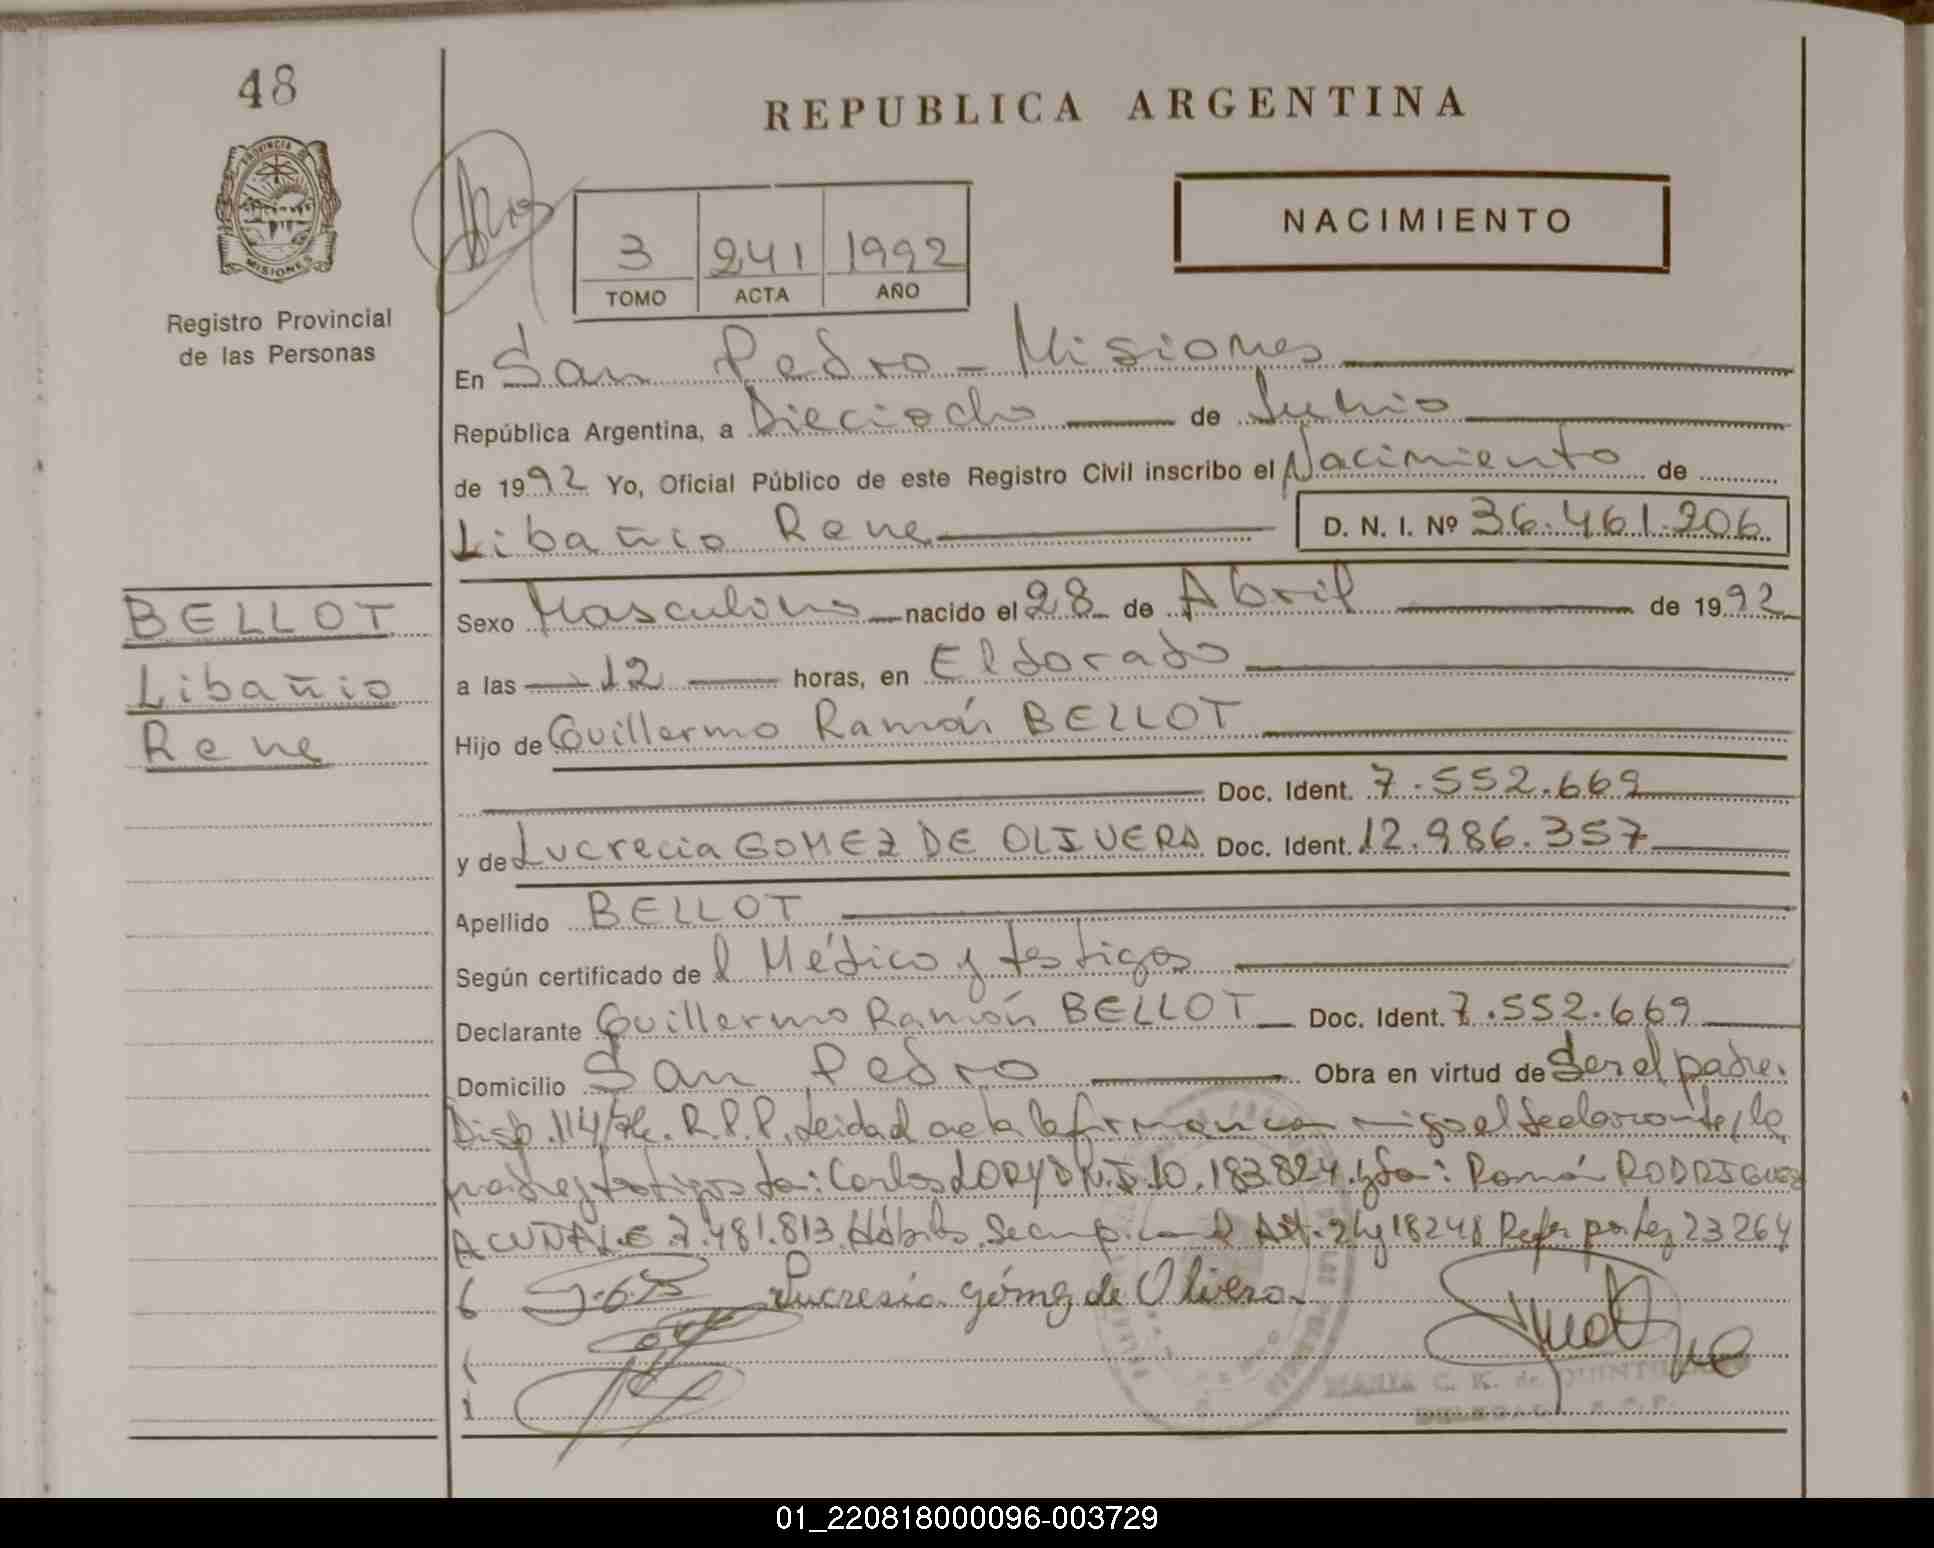 48
REPUBLICA ARGENTINA
NACIMIENTO
PROVINCIA DE
MISIONES
Registro Provincial
de las Personas
3 241 1992
TOMO ACTA AÑO
En San Pedro - Misiones
República Argentina, a Dieciocho de Junio
de 1992 Yo, Oficial Público de este Registro Civil inscribo el Nacimiento de
Libañio Rene D. N. I. Nº 36.461.206
BELLOT
Libañio
Rene
Sexo Masculino nacido el 28 de Abril de 1992
a las 12 horas, en Eldorado
Hijo de Guillermo Ramón BELLOT
Doc. Ident. 7.552.669
y de Lucrecia GOMEZ DE OLIVERA Doc. Ident. 12.986.357
Apellido BELLOT
Según certificado de l Médico y testigos
Declarante Guillermo Ramón BELLOT Doc. Ident. 7.552.669
Domicilio San Pedro Obra en virtud de Ser el padre.
Disp. 114/ R.P.P. Leida el acta la firman conmigo el declarante, la
madre y testigos Carlos LORY D.N.I. 10.183.824 y Ramón RODRIGUEZ
ACUÑA L.E 7.481.813. Hábiles. Se cumple con el Art. 2 Ley 18248 Refor. por Ley 23264
Lucresia gómez de Olivera
MARIA C. K. de QUINTU
01_220818000096-003729